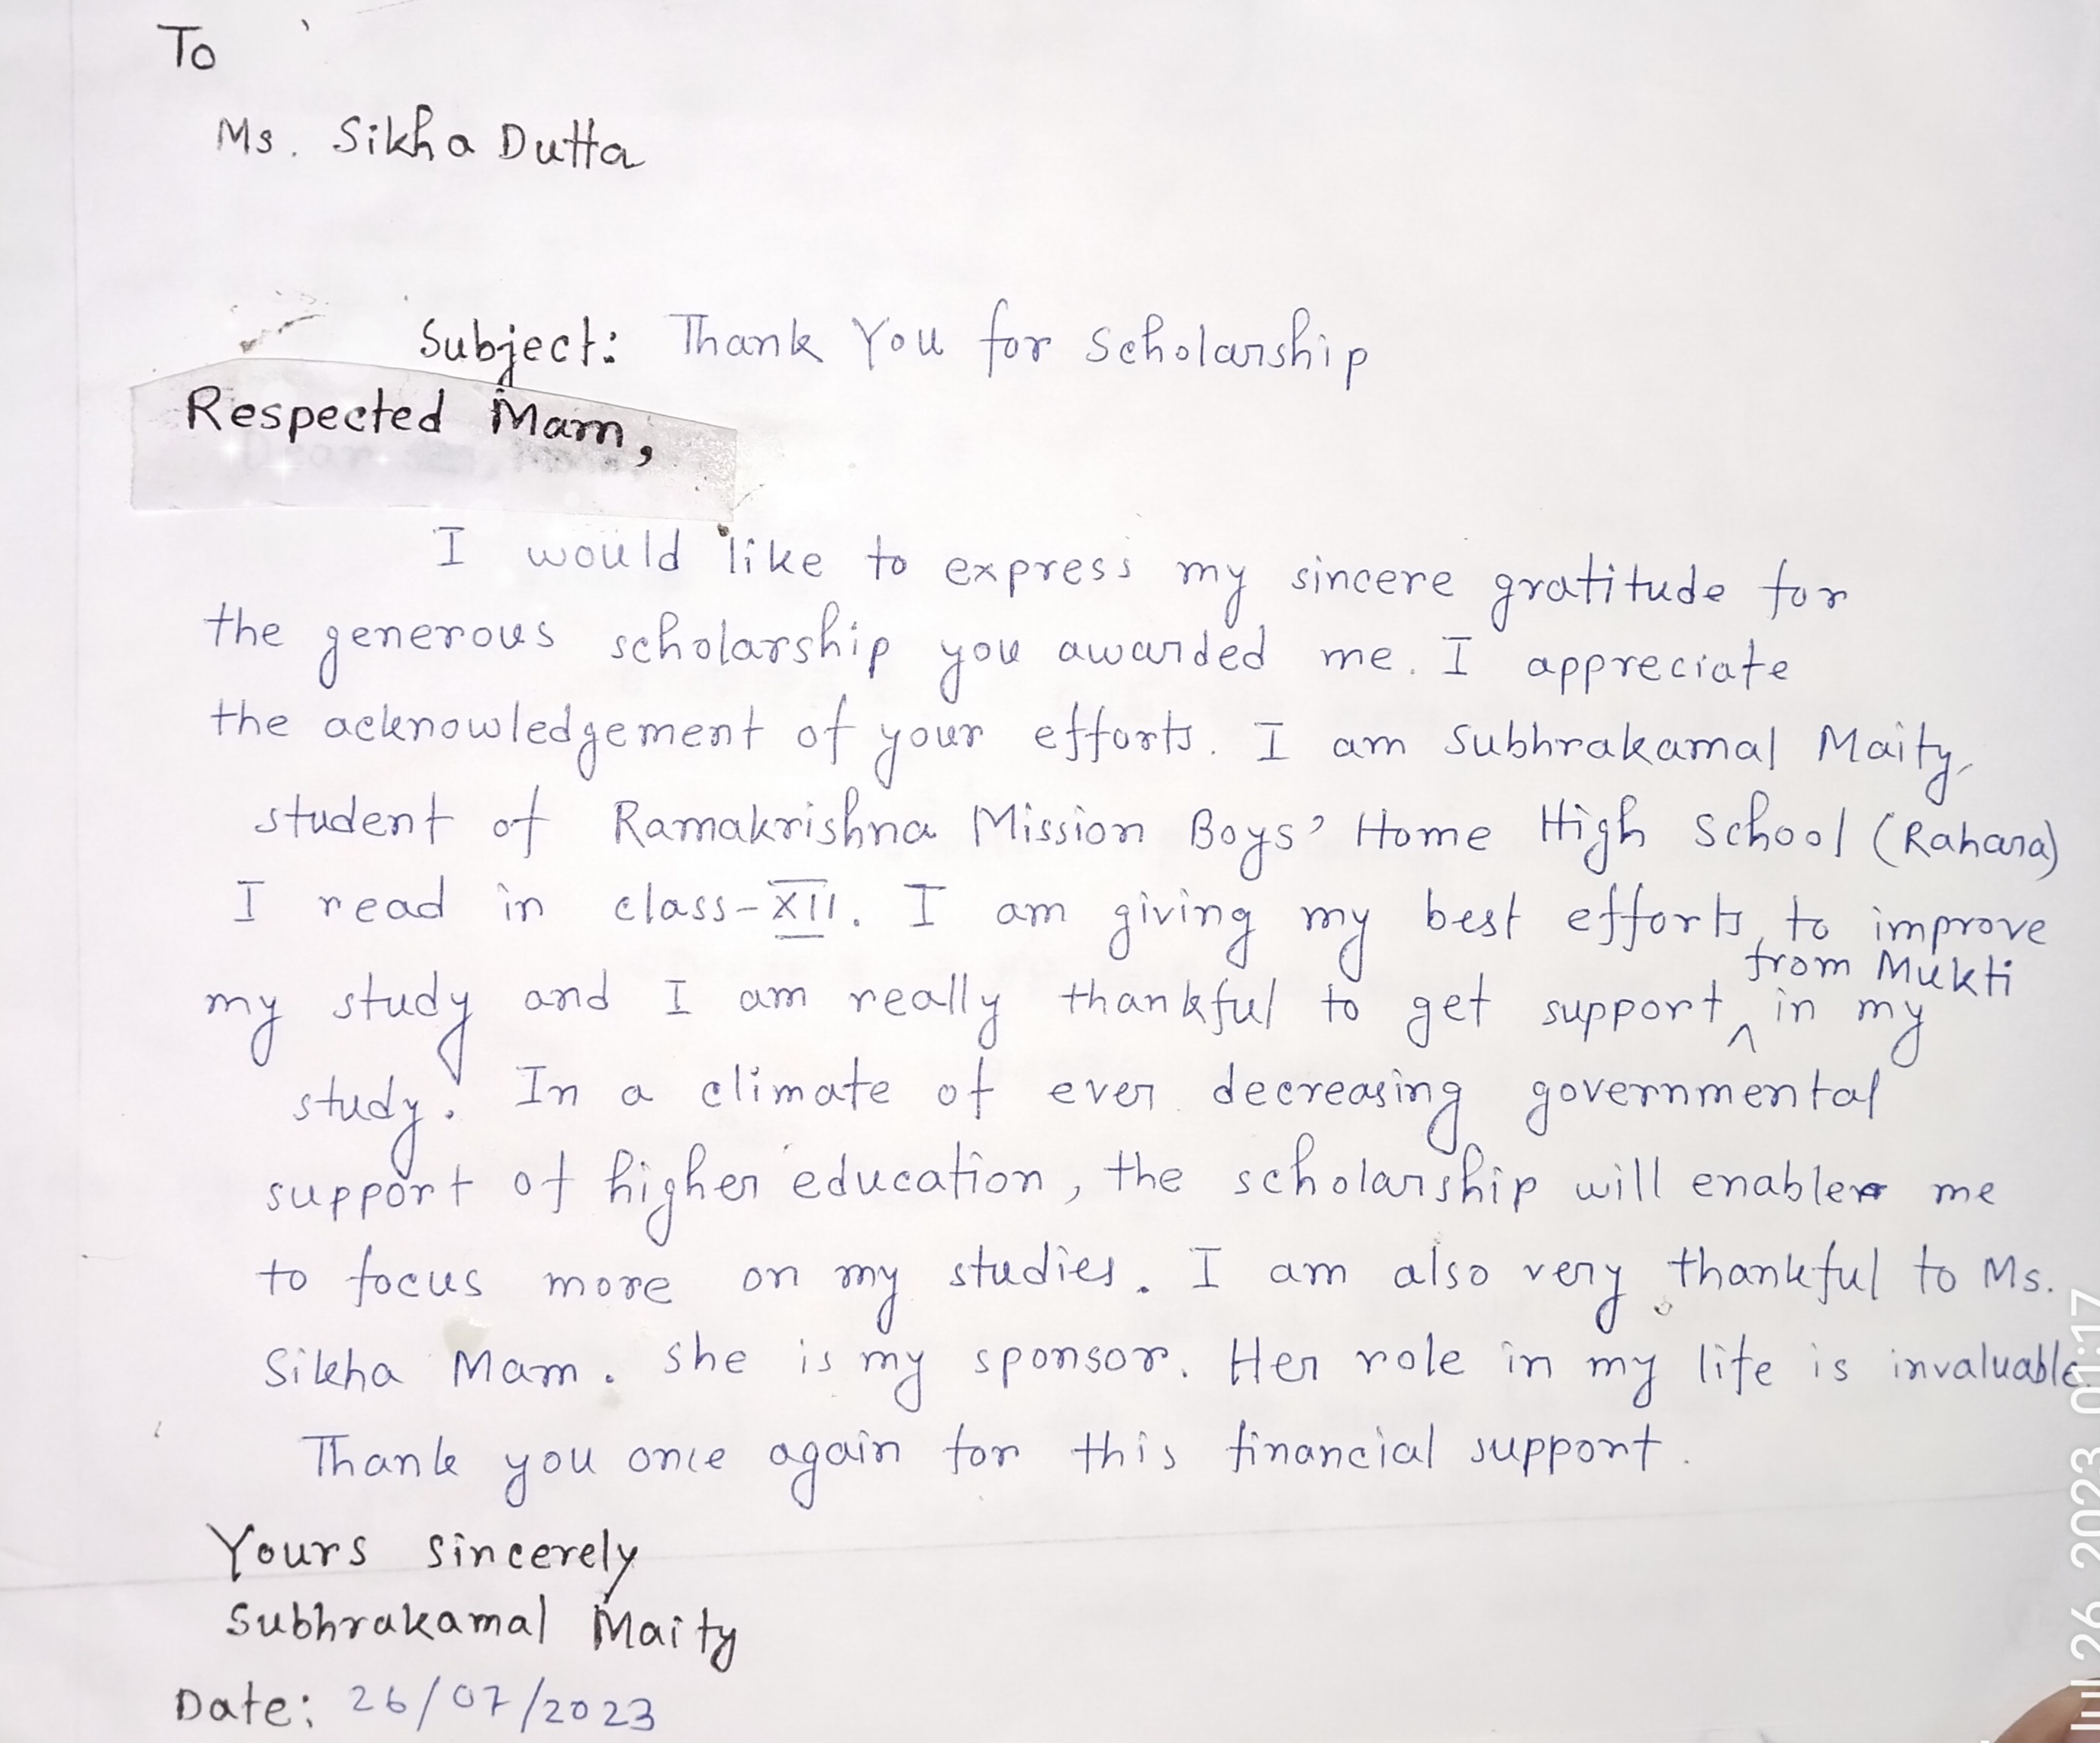 To
Ms. Sikha Dutta
Subject: Thank You for Scholarship
Respected Mam,
I would like to express my sincere gratitude for
the generous scholarship you awarded me. I appreciate
the acknowledgement of your efforts. I am Subhrakamal Maity,
student of Ramakrishna Mission Boys' Home High School (Rahara)
I read in class-XII. I am giving my best efforts to improve
from Mukti
my study and I am really thankful to get support ^ in my
study. In a climate of ever decreasing governmental
support of higher education, the scholarship will enable me
to focus more on my studies. I am also very thankful to Ms.
Sikha Mam. She is my sponsor. Her role in my life is invaluable.
Thank you once again for this financial support.
Yours sincerely
Subhrakamal Maity
Date: 26/07/2023
Jul 26, 2023 01:17